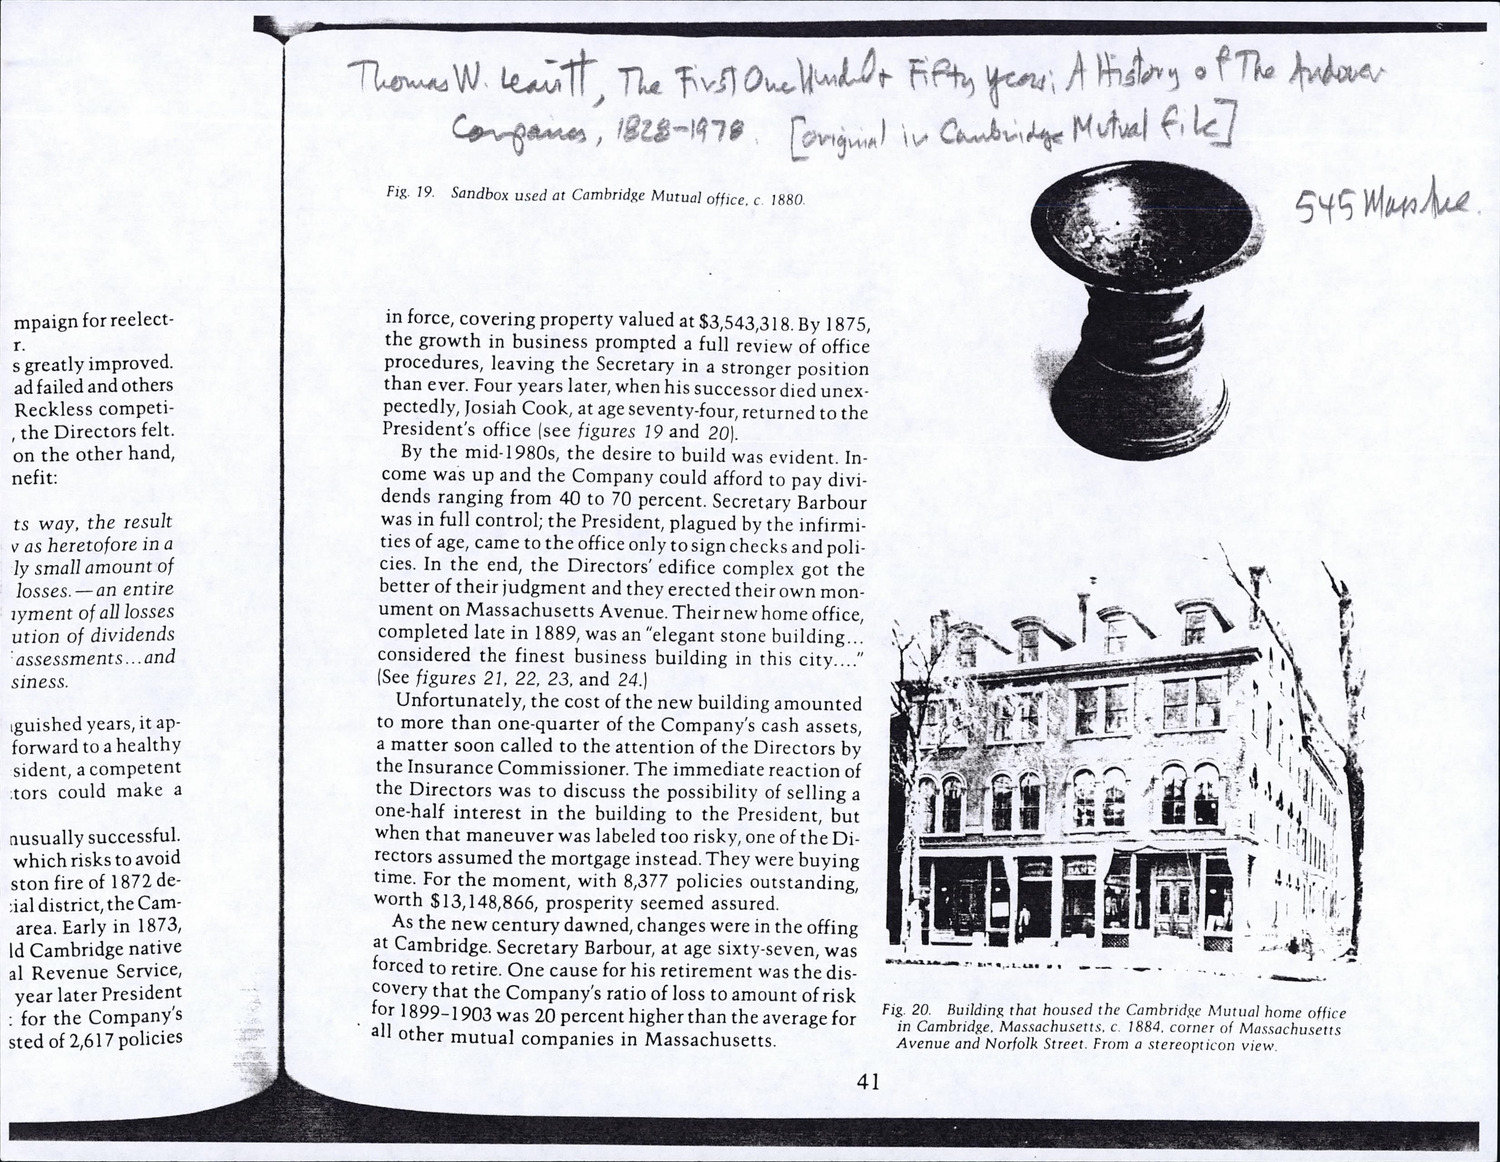 Thomas W. Leavitt, The First One Hundred + Fifty Years: A History of The Andover
Companies, 1828-1978. [original in Cambridge Mutual file]
545 Mass Ave.
Fig. 19. Sandbox used at Cambridge Mutual office, c. 1880.
mpaign for reelect-
r.
s greatly improved.
ad failed and others
Reckless competi-
, the Directors felt.
on the other hand,
nefit:
ts way, the result
v as heretofore in a
ly small amount of
losses.—an entire
yment of all losses
ution of dividends
assessments...and
siness.
guished years, it ap-
forward to a healthy
sident, a competent
tors could make a
nusually successful.
which risks to avoid
ston fire of 1872 de-
cial district, the Cam-
area. Early in 1873,
ld Cambridge native
al Revenue Service,
year later President
: for the Company's
sted of 2,617 policies
in force, covering property valued at $3,543,318. By 1875,
the growth in business prompted a full review of office
procedures, leaving the Secretary in a stronger position
than ever. Four years later, when his successor died unex-
pectedly, Josiah Cook, at age seventy-four, returned to the
President's office (see figures 19 and 20).
By the mid-1980s, the desire to build was evident. In-
come was up and the Company could afford to pay divi-
dends ranging from 40 to 70 percent. Secretary Barbour
was in full control; the President, plagued by the infirmi-
ties of age, came to the office only to sign checks and poli-
cies. In the end, the Directors' edifice complex got the
better of their judgment and they erected their own mon-
ument on Massachusetts Avenue. Their new home office,
completed late in 1889, was an "elegant stone building...
considered the finest business building in this city...."
(See figures 21, 22, 23, and 24.)
Unfortunately, the cost of the new building amounted
to more than one-quarter of the Company's cash assets,
a matter soon called to the attention of the Directors by
the Insurance Commissioner. The immediate reaction of
the Directors was to discuss the possibility of selling a
one-half interest in the building to the President, but
when that maneuver was labeled too risky, one of the Di-
rectors assumed the mortgage instead. They were buying
time. For the moment, with 8,377 policies outstanding,
worth $13,148,866, prosperity seemed assured.
As the new century dawned, changes were in the offing
at Cambridge. Secretary Barbour, at age sixty-seven, was
forced to retire. One cause for his retirement was the dis-
covery that the Company's ratio of loss to amount of risk
for 1899-1903 was 20 percent higher than the average for
all other mutual companies in Massachusetts.
BANK
Fig. 20. Building that housed the Cambridge Mutual home office
in Cambridge, Massachusetts, c. 1884, corner of Massachusetts
Avenue and Norfolk Street. From a stereopticon view.
41